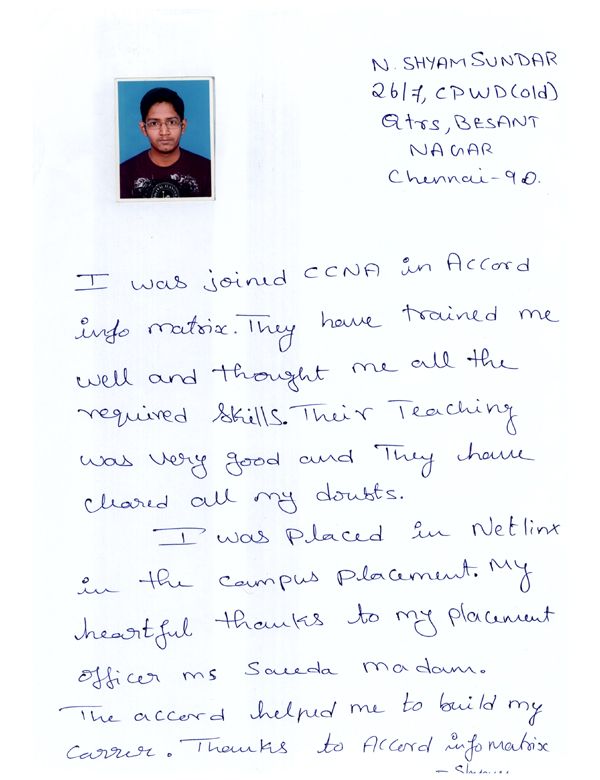 N. SHYAM SUNDAR
26/7, CPWD(old)
Qtrs, BESANT
NAGAR
Chennai-90.
I was joined CCNA in Accord
info matrix. They have trained me
well and thought me all the
required skills. Their Teaching
was very good and They have
cleared all my doubts.
I was placed in Netlinx
in the campus placement. My
heartful thanks to my placement
officer ms Saueda madam.
The accord helped me to build my
carrer. Thanks to Accord infomatrix